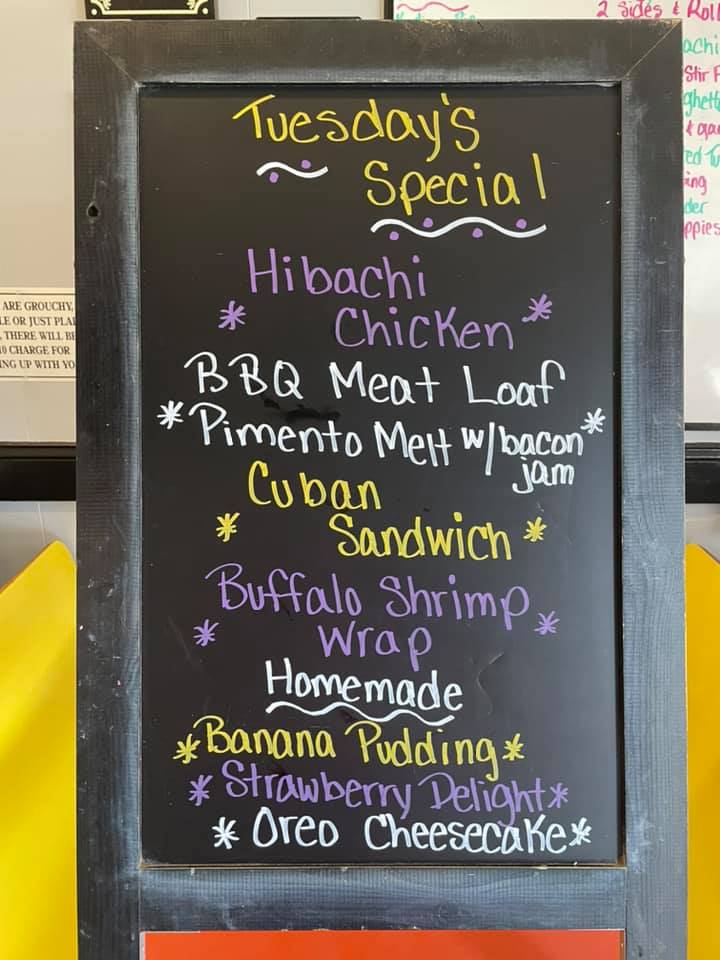 Tuesday's
Special
Hibachi
* Chicken *
BBQ Meat Loaf
* Pimento Melt w/bacon *
jam
Cuban
* Sandwich *
Buffalo Shrimp
* Wrap *
Homemade
* Banana Pudding *
* Strawberry Delight *
* Oreo Cheesecake *
ARE GROUCHY,
LE OR JUST PLAI
, THERE WILL BE
10 CHARGE FOR
ING UP WITH YO
2 sides & Roll
achi
Stir F
ghett
&
ing
der
ppies